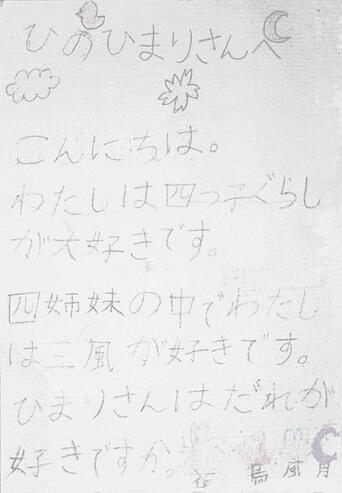 ひのひまりさんへ
こんにちは。
わたしは四つ子ぐらし
が大好きです。
四姉妹の中でわたし
は三風が好きです。
ひまりさんはだれが
好きですか。
花 鳥 風 月